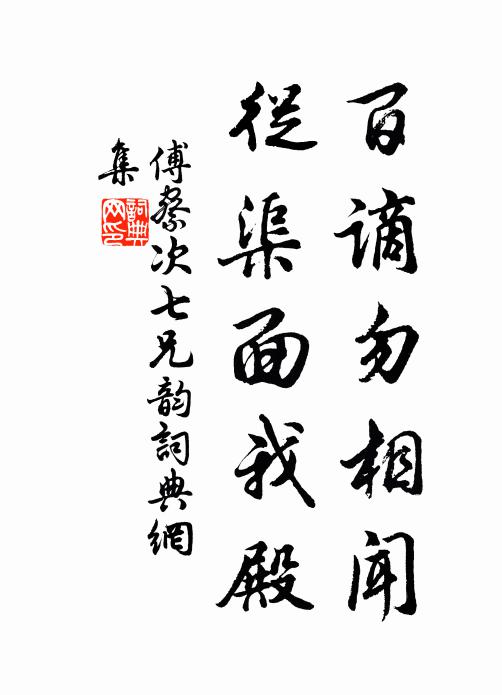 百謫勿相聞
從渠面我殿
傅察次七兄韵詞典網
集
詞典
网印